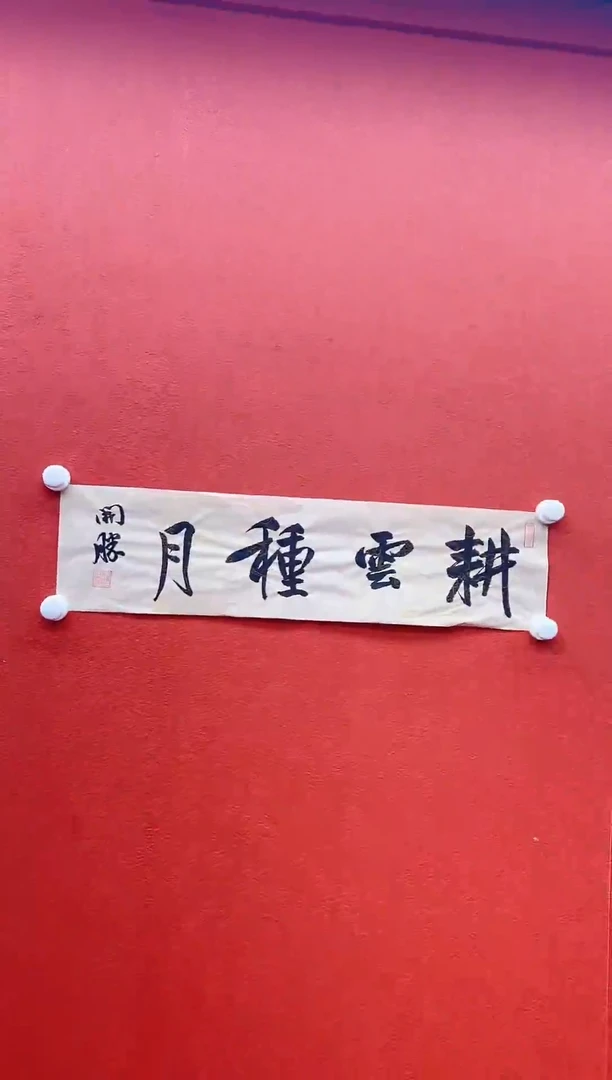 耕雲種月
開勝